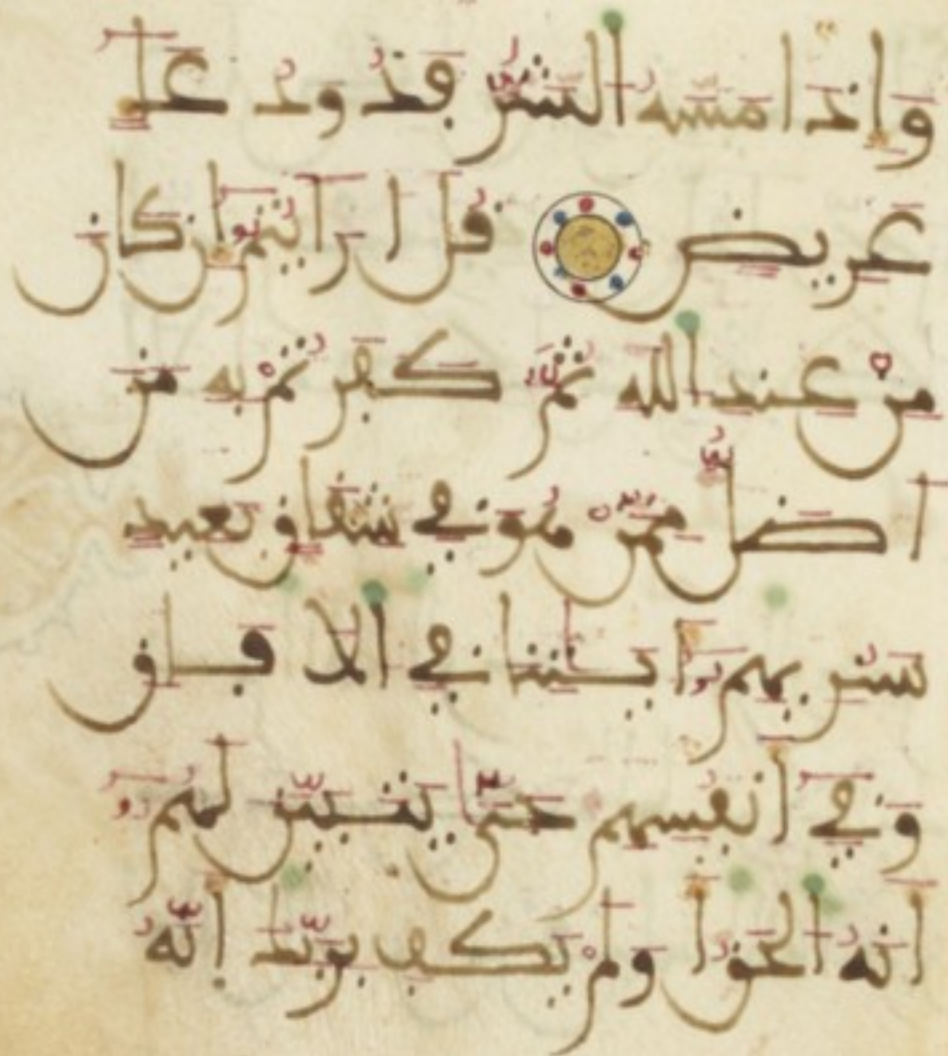 وإذا مسه الشر فذو دعا
عريض قل ارايتم إن كان
من عند الله ثم كفرتم به من
اضل ممن هو في شقاق بعيد
سنريهم ءايتنا في الافاق
وفي أنفسهم حتى يتبين لهم
أنه الحق أولم يكف بربك أنه